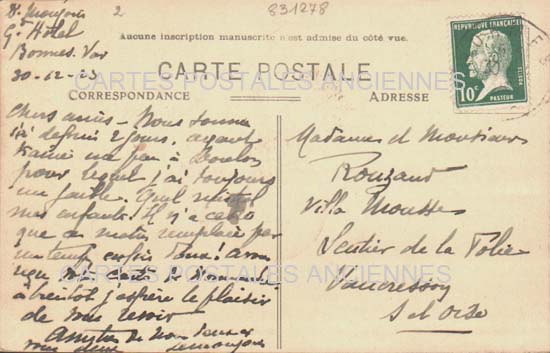 2
831278
Gd Hôtel
Bormes. Var
30-12-23
Aucune inscription manuscrite n'est admise du côté vue.
CARTES POSTALES ANCIENNES
CARTE POSTALE
CORRESPONDANCE
ADRESSE
REPUBLIQUE FRANÇAISE
10c
POSTES
PASTEUR
Chers amis - Nous sommes
ici depuis 2 jours, ayant
un peu à Toulon
pour lequel j'ai toujours
un faible. Quel
mes enfants! Il n'y a
que ce matin remplacé par
un temps enfin doux!
CARTES POSTALES ANCIENNES
à bientôt j'espère le plaisir
de vous revoir
Amitiés de nous deux à
vous deux
Madame et Monsieur
Rouzaud
Villa Mousse
Sentier de la Folie
Vaucresson
S et Oise